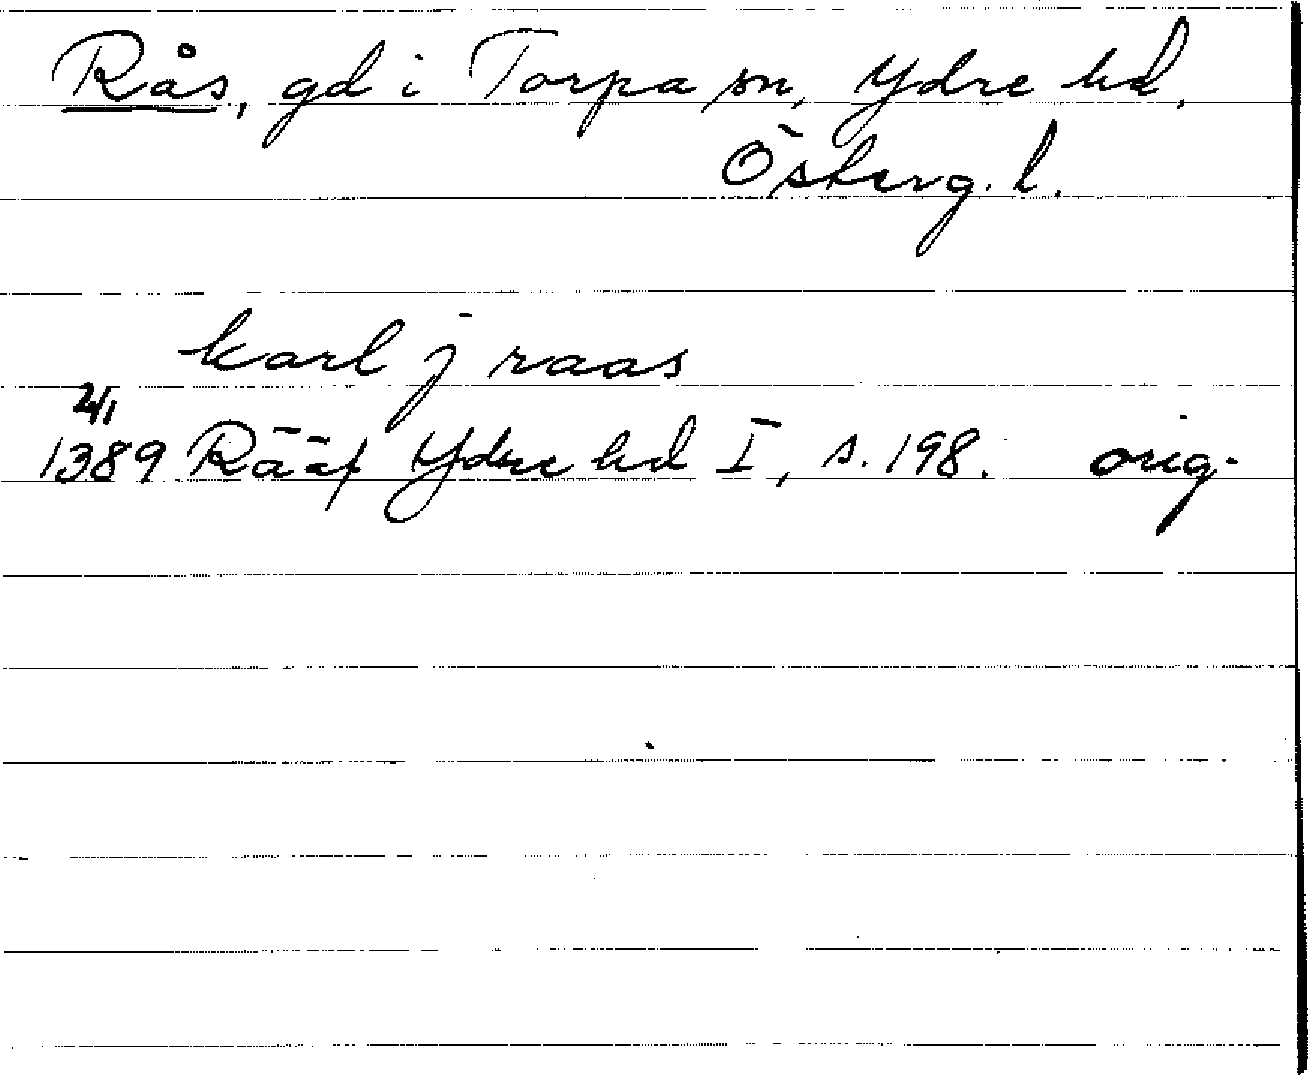 Rås, gd i Torpa sn, Ydre hd,
Österg. l.
karl j raas
2/1
1389 Rääf Ydre hd I, s. 198. orig.